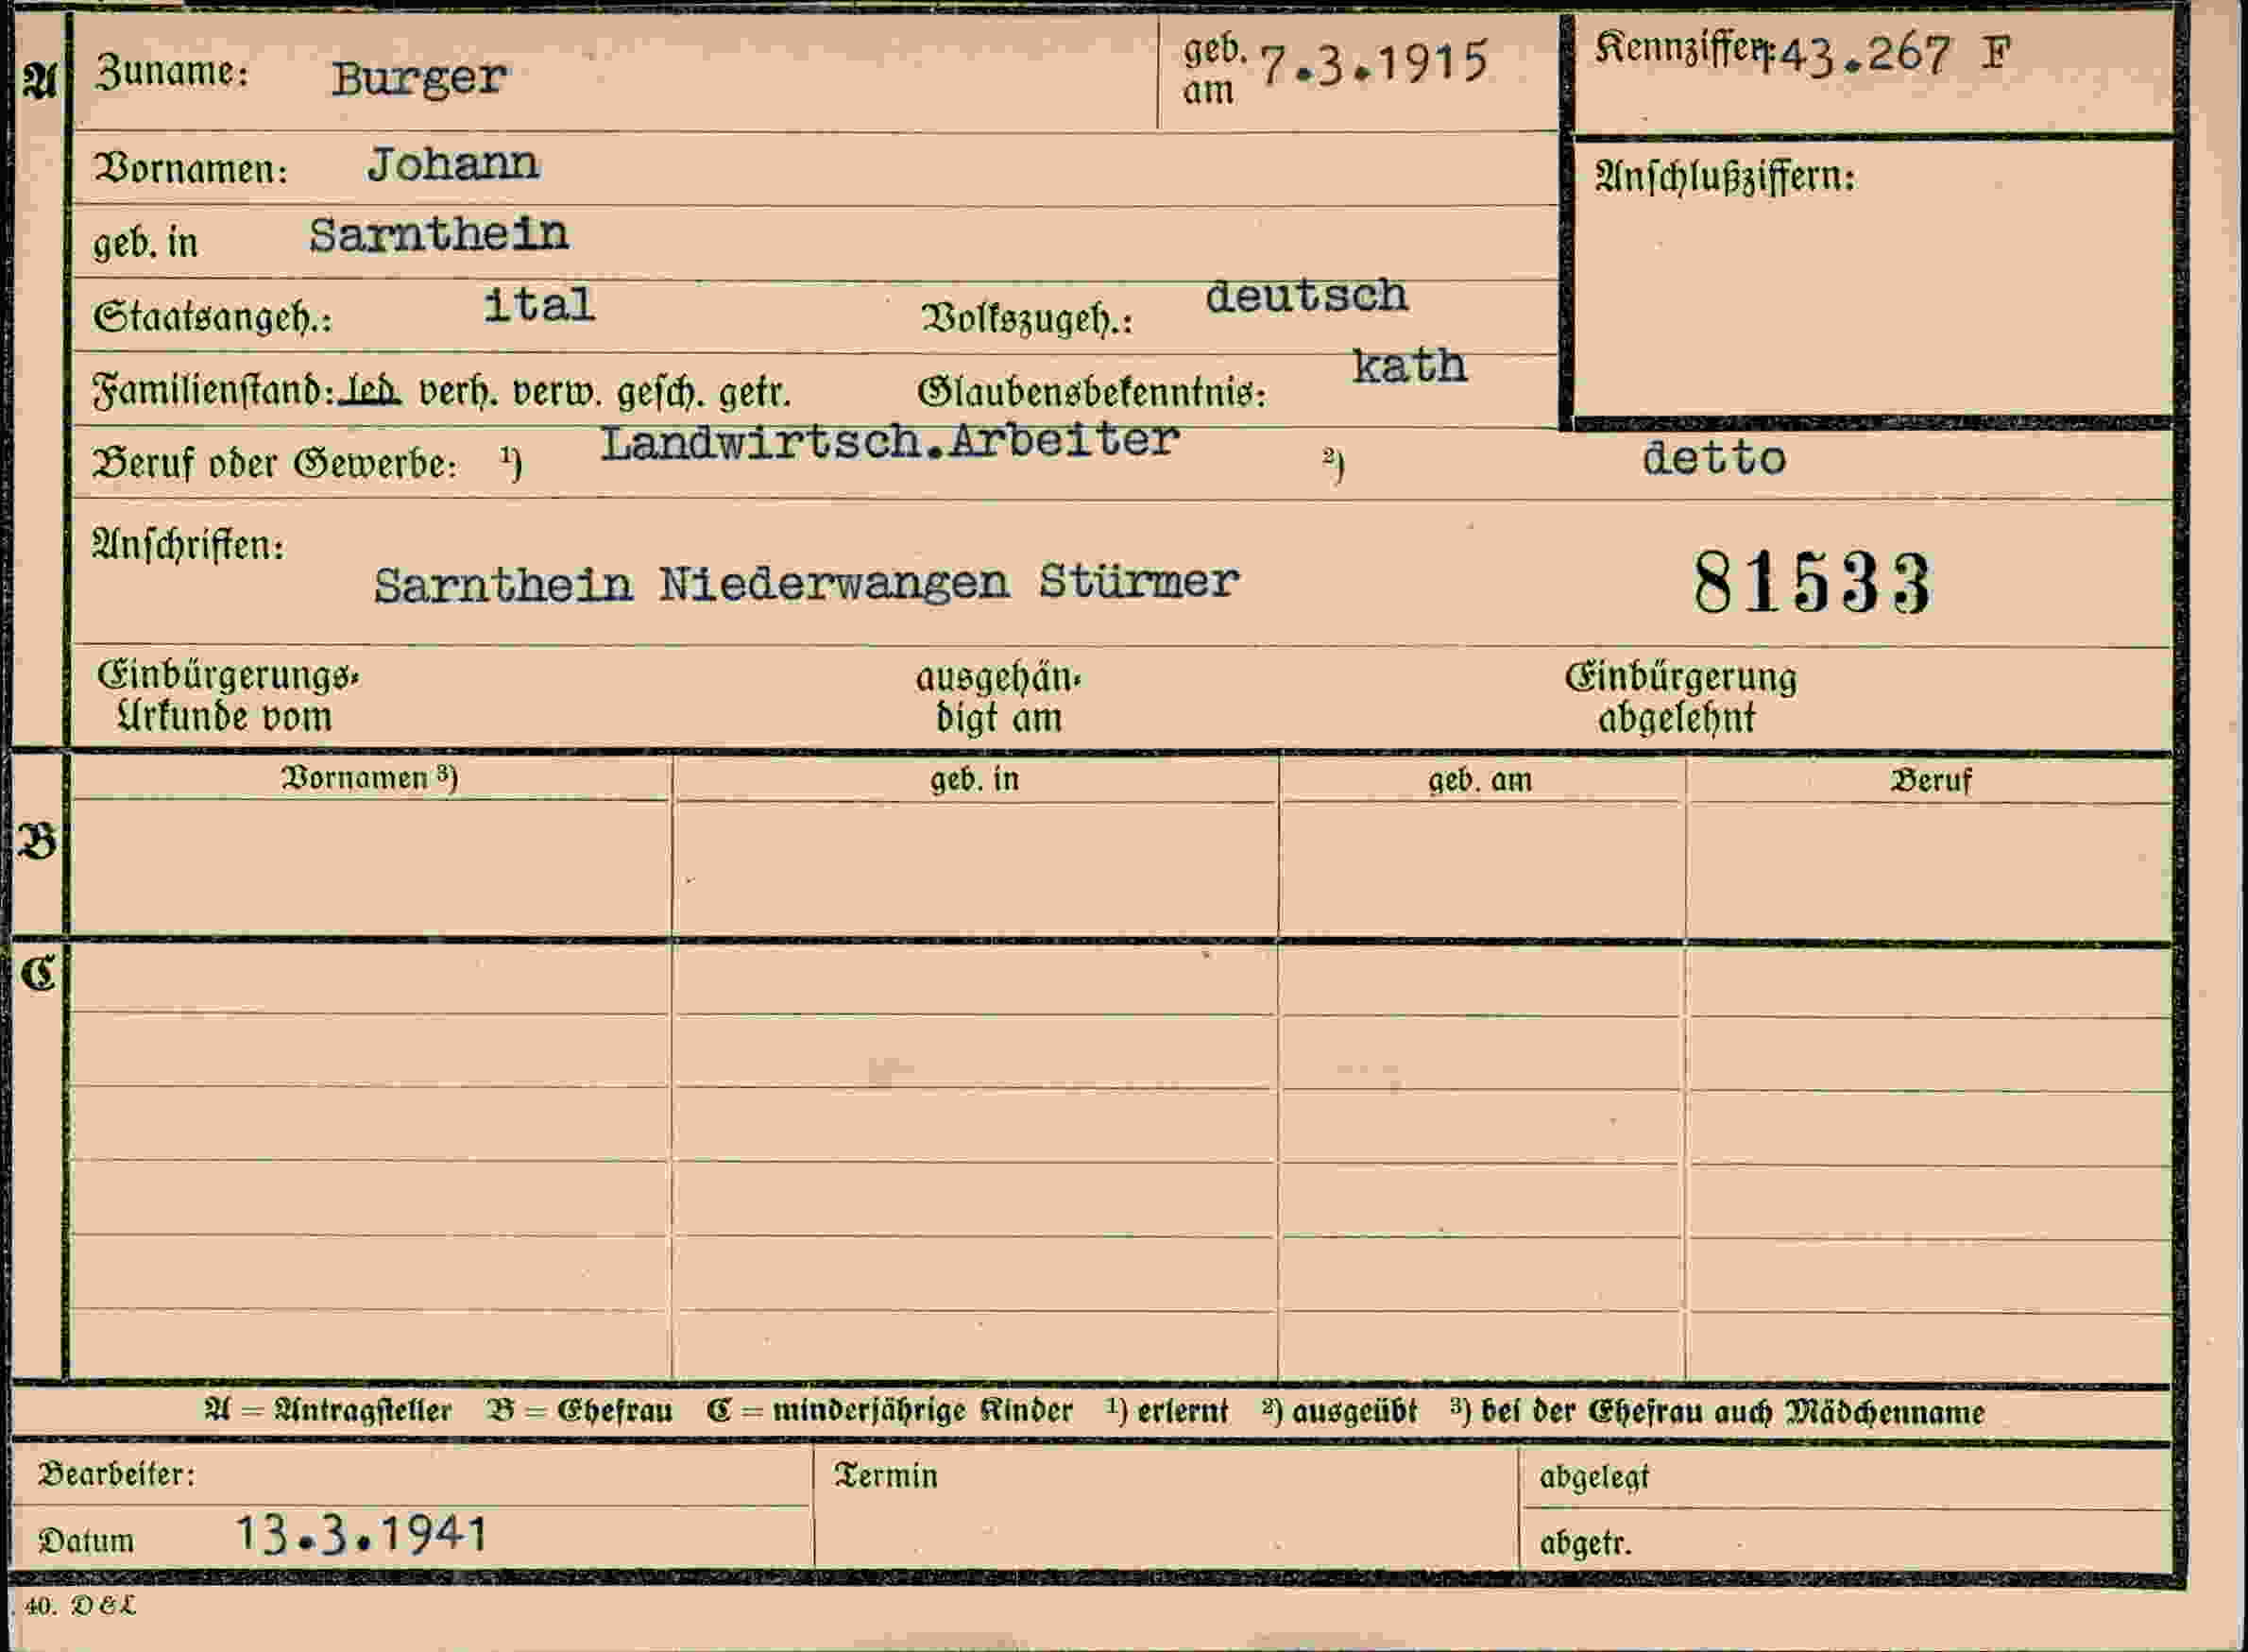 A Zuname: Burger geb. am 7.3.1915 Kennziffer: 143.267 F
Vornamen: Johann
Anschlußziffern:
geb. in Sarnthein
Staatsangeh.: ital Volkszugeh.: deutsch
Familienstand: led. verh. verw. gesch. getr. Glaubensbekenntnis: kath
Beruf oder Gewerbe: ¹) Landwirtsch.Arbeiter ²) detto
Anschriften:
Sarnthein Niederwangen Stürmer 81533
Einbürgerungs- ausgehän- Einbürgerung
Urkunde vom digt am abgelehnt
Vornamen ³) geb. in geb. am Beruf
B
C
A = Antragsteller B = Ehefrau C = minderjährige Kinder ¹) erlernt ²) ausgeübt ³) bei der Ehefrau auch Mädchenname
Bearbeiter: Termin abgelegt
Datum 13.3.1941 abgetr.
40. D & L